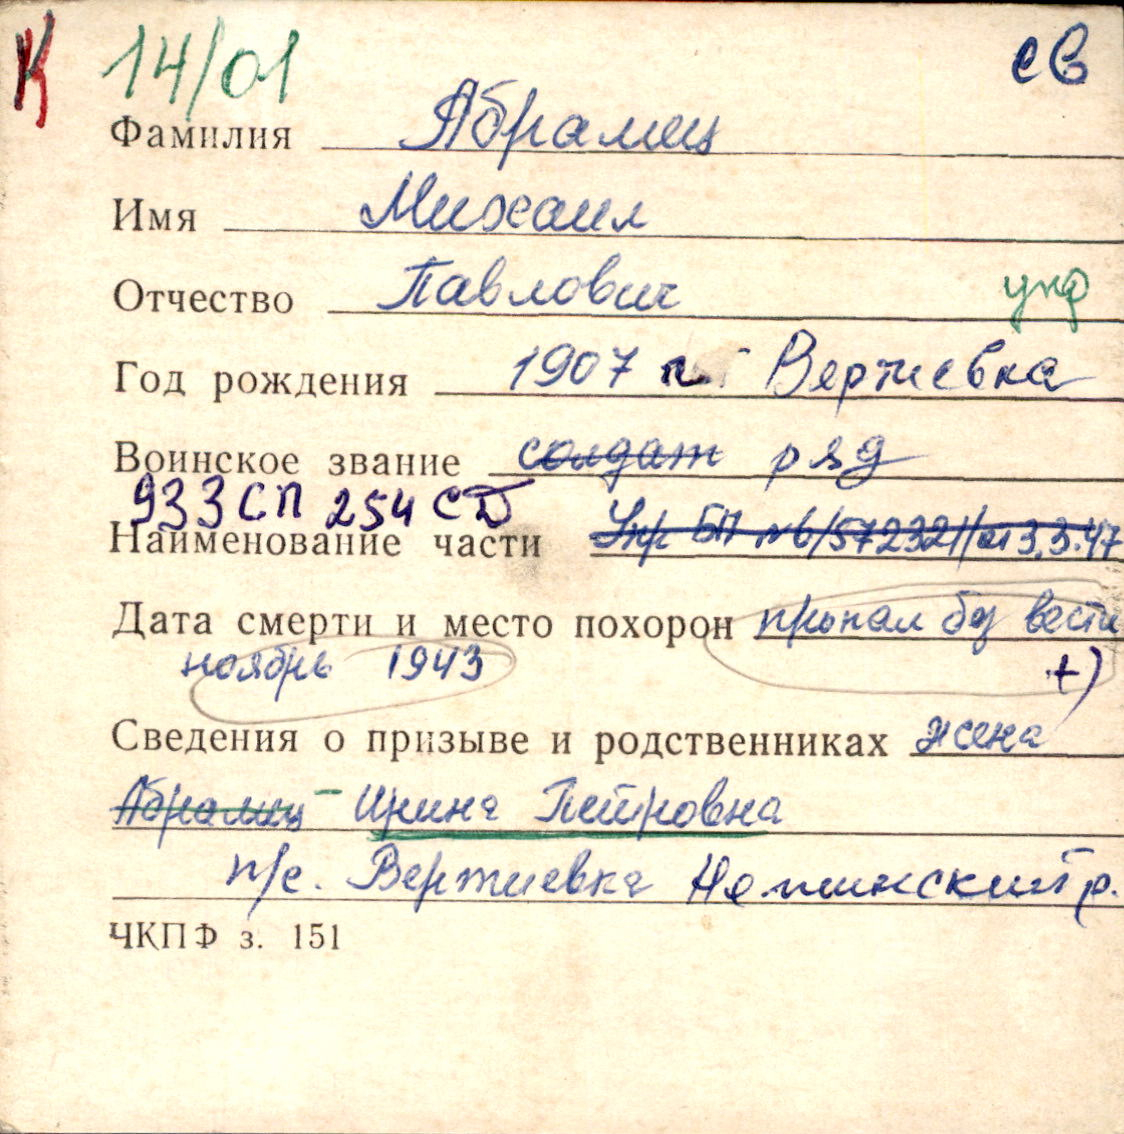 К 14/01 св
Фамилия Абрамец
Имя Михаил
Отчество Павлович укр
Год рождения 1907 Вертиевка
Воинское звание солдат ряд
933 СП 254 СД
Наименование части Укр БП №6/572321/от 3.3.47
Дата смерти и место похорон пропал без вести
ноябрь 1943 +)
Сведения о призыве и родственниках жена
Абрамец - Ирина Петровна
п/с. Вертиевка Нежинский р.
ЧКПФ з. 151